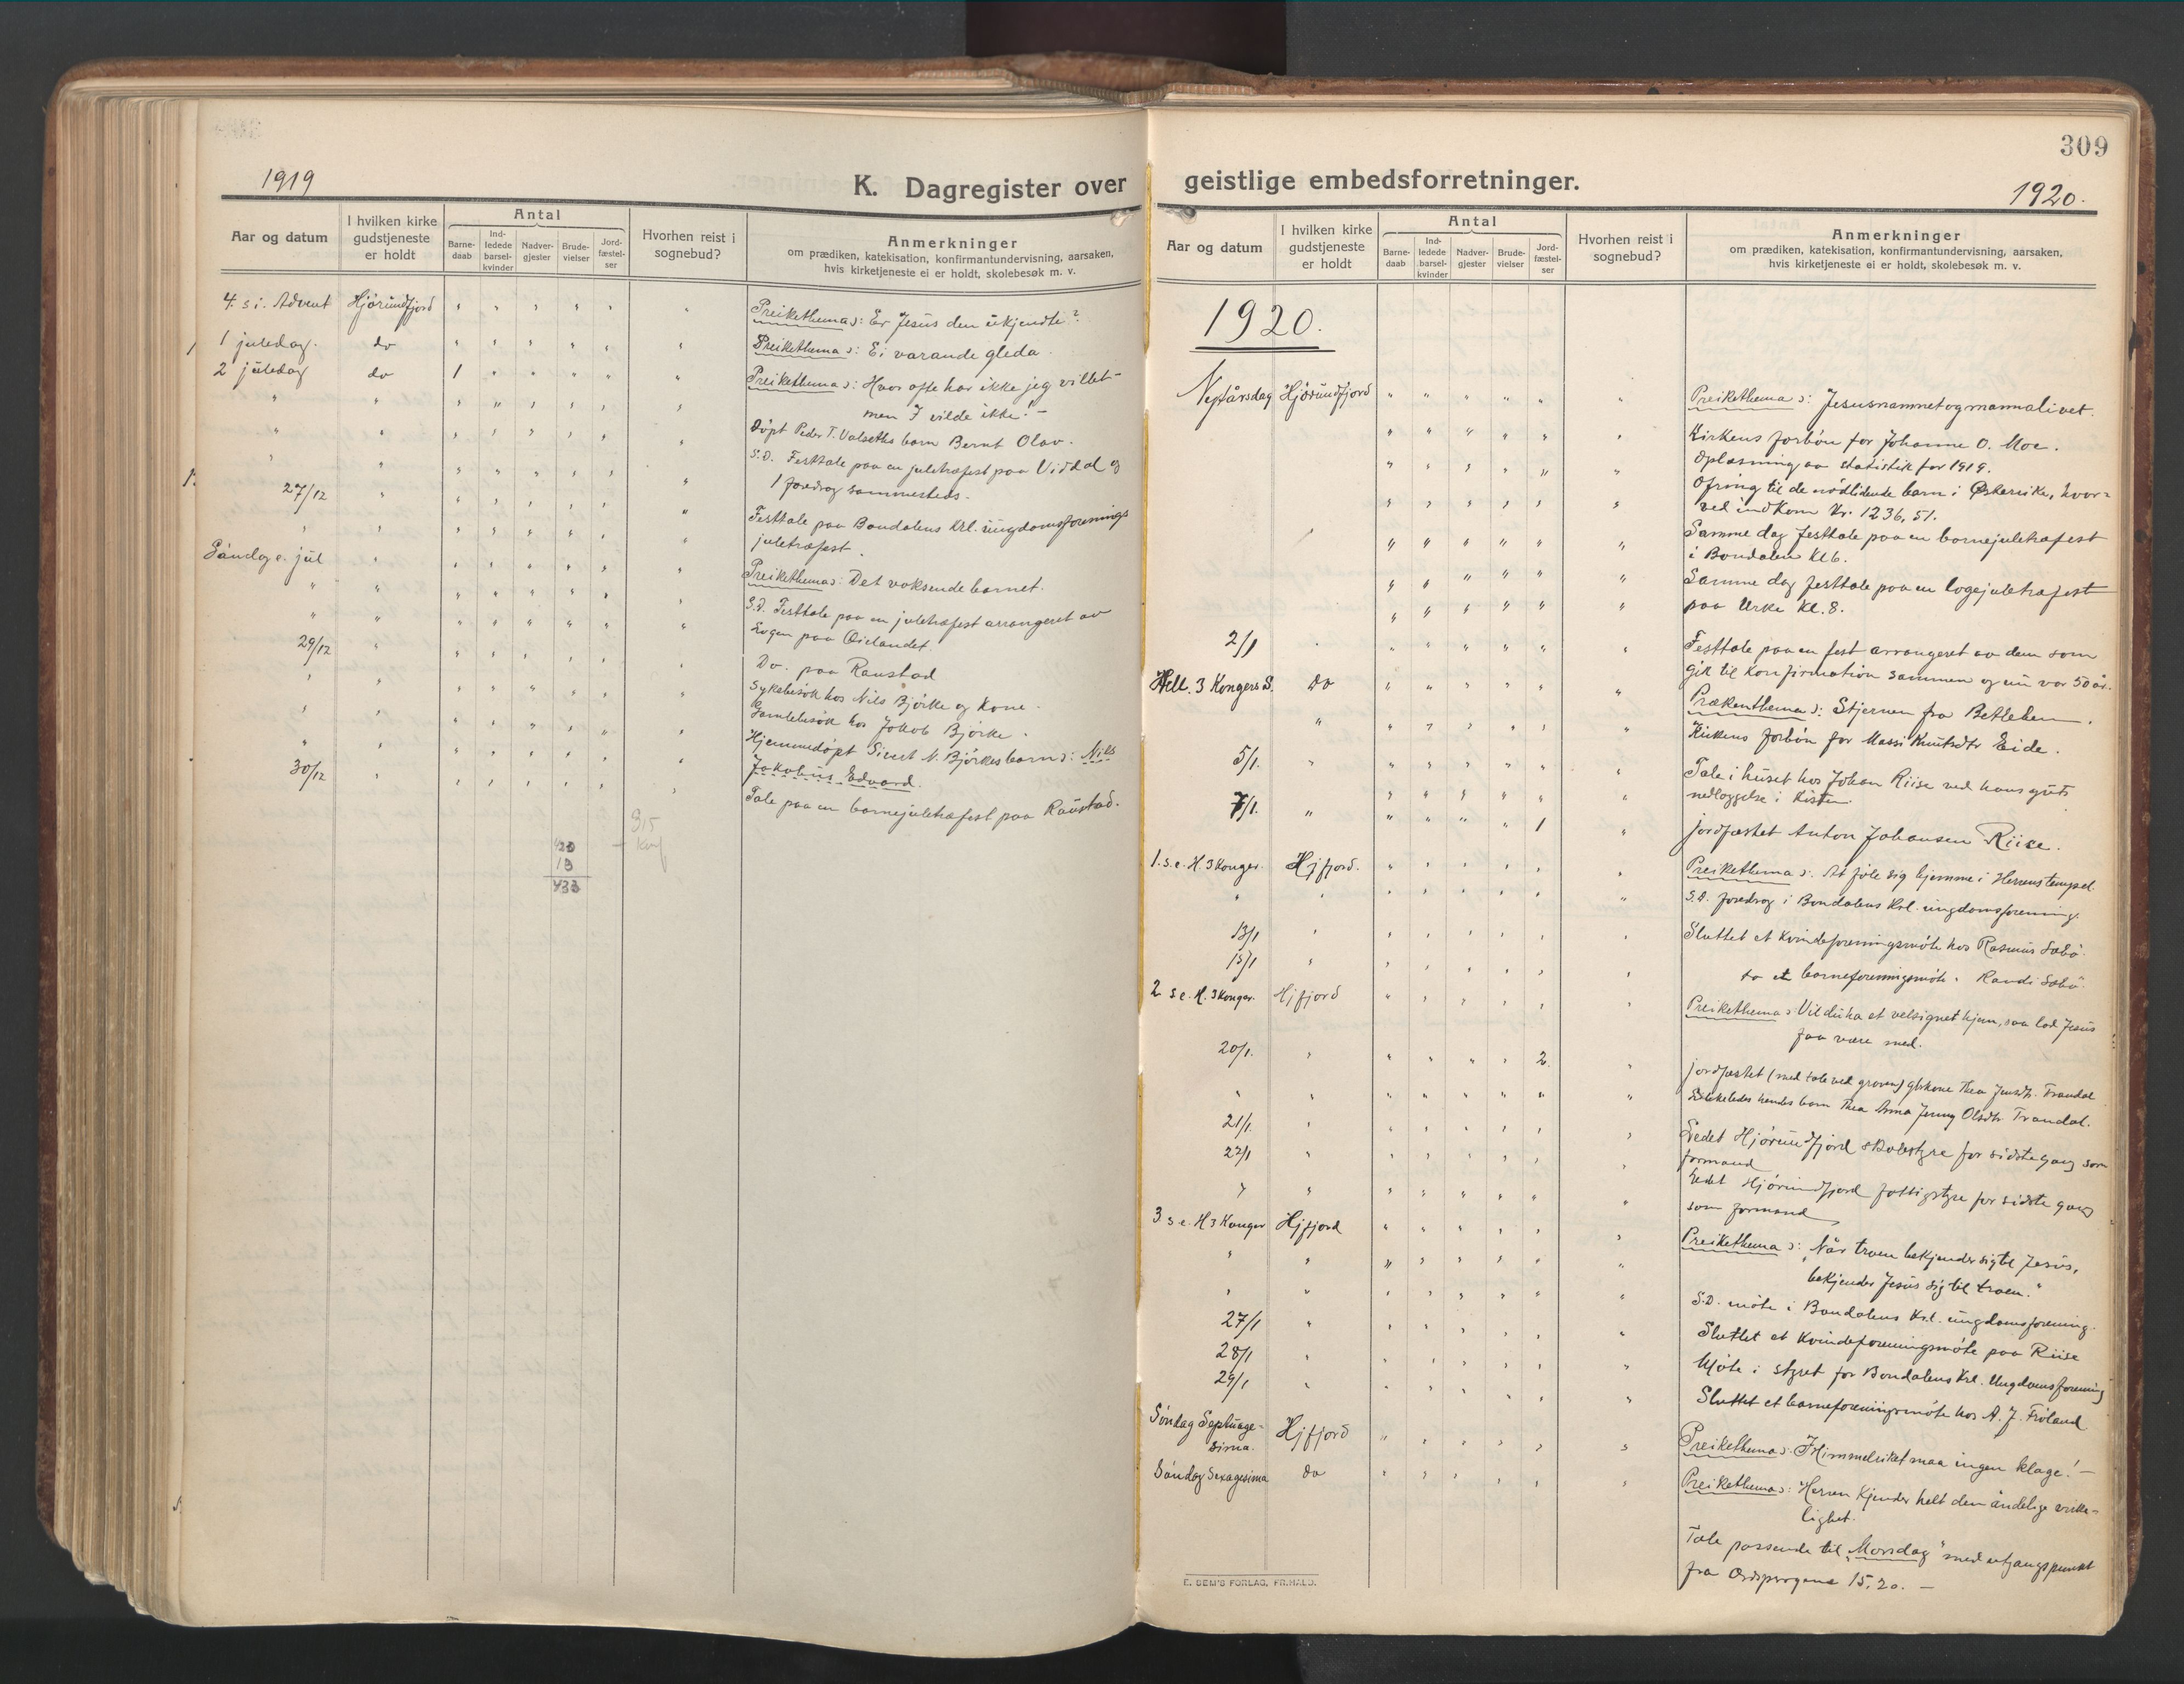 1919
K. Dagregister over
Aar og datum
I hvilken kirke gudstjeneste er holdt
Antal
Barne-daab
Ind-ledede barsel-kvinder
Nadver-gjester
Brude-vielser
Jord-fæstel-ser
Hvorhen reist i sognebud?
Anmerkninger
om prædiken, katekisation, konfirmantundervisning, aarsaken,
hvis kirketjeneste ei er holdt, skolebesøk m. v.
4. s i. Advent Hjörundfjord Preikethema ɔ: Er Jesus den ukjendte?
1 juledag. do Preikethema ɔ: Ei varande gleda.
2 juledag do 1 Preikethema ɔ: Hvor ofte har ikke jeg villet -
men I vilde ikke! -
Döpt Peder T. Valseths barn Bernt Olav.
S.D. Festtale paa en juletræfest paa Viddal og
1 foredrag sammesteds.
27/12 Festtale paa Bondalens Krl. ungdomsforenings
juletræfest.
Söndag e. jul Preikethema ɔ: Det voksende barnet.
S.D. Festtale paa en juletræfest arrangeret av
Logen paa Öielandet.
29/12 Do. paa Raustad
Sykebesök hos Nils Björke og Kone.
Gamlebesök hos Jakob Björke.
Hjemmedöpt Sivert N. Björkes barn ɔ: Nils
Jakobus Edvard.
30/12 Tale paa en barnejuletræfest paa Raustad.
315
420 Konf
13
433
309
geistlige embedsforretninger.
1920.
Aar og datum
I hvilken kirke gudstjeneste er holdt
Antal
Barne-daab
Ind-ledede barsel-kvinder
Nadver-gjester
Brude-vielser
Jord-fæstel-ser
Hvorhen reist i sognebud?
Anmerkninger
om prædiken, katekisation, konfirmantundervisning, aarsaken,
hvis kirketjeneste ei er holdt, skolebesøk m. v.
1920.
Nytårsdag Hjörundfjord Preikethema ɔ: Jesusnamnet og mannalivet.
Kirkens forbön for Johanne O. Moe.
Oplæsning av statistik for 1919.
Ofring til de nödlidende barn i Österrike, hvor=
ved indkom Kr. 1236,51.
Samme dag festtale paa en barnejuletræfest
i Bondalen Kl 6.
Samme dag festtale paa en logejuletræfest
paa Urke Kl. 8.
2/1 Festtale paa en fest arrangeret av dem som
gik til Konfirmation sammen og nu var 50 år.
Hell. 3 Kongers S. Do Prækenthema ɔ: Stjernen fra Betlehem.
Kirkens forbön for Massi Knutsdtr Eide.
5/1. Tale i huset hos Johan Riise ved hans guts
nedlæggelse i Kisten.
7/1. 1 jordfæstet Anton Johansen Riise.
1. s. e. H. 3 Konger. Hjfjord. Preikethema ɔ: At föle sig hjemme i Herrens tempel.
S.D. foredrag i Bondalens Krl. ungdomsforening.
13/1 Sluttet et Kvindeforeningsmöte hos Rasmus Sæbö.
15/1 do et barneforeningsmöte. Randi Sæbö.
2 s e. H. 3 Konger. Hjfjord Preikethema ɔ: Vil du ha et velsignet hjem, saa lad Jesus
faa være med.
20/1. 2 jordfæstet (med tale ved graven) gbrkone Thea Jensdtr. Trandal
Likeledes hendes barn Thea Anna Jenny Olsdtr. Trandal.
21/1. Ledet Hjörundfjord skolestyre for sidste gang som
formand
22/1 Ledet Hjörundfjord fattigstyre for sidste gang
som formand
3 s e. H 3 Konger Hjfjord Preikethema ɔ: "Når troen bekjender sig til Jesus,
bekjender Jesus sig til troen."
S.D. möte i Bondalens Krl. ungdomsforening.
27/1 Sluttet et Kvindeforeningsmöte paa Riise
28/1 Möte i styret for Bondalens Krl. Ungdomsforening
29/1 Sluttet et barneforeningsmöte hos A. J. Fröland
Söndag Septuage-
sima. Hjfjord Preikethema ɔ: I Himmelriket maa ingen klage! -
Söndag Sexagesima do Preikethema ɔ: Herren Kjender helt den åndelige virke-
lighet.
Tale passende til "Morsdag" med utgangspunkt
fra Ordsprogene 15,20. -
E. SEM'S FORLAG, FR.HALD.